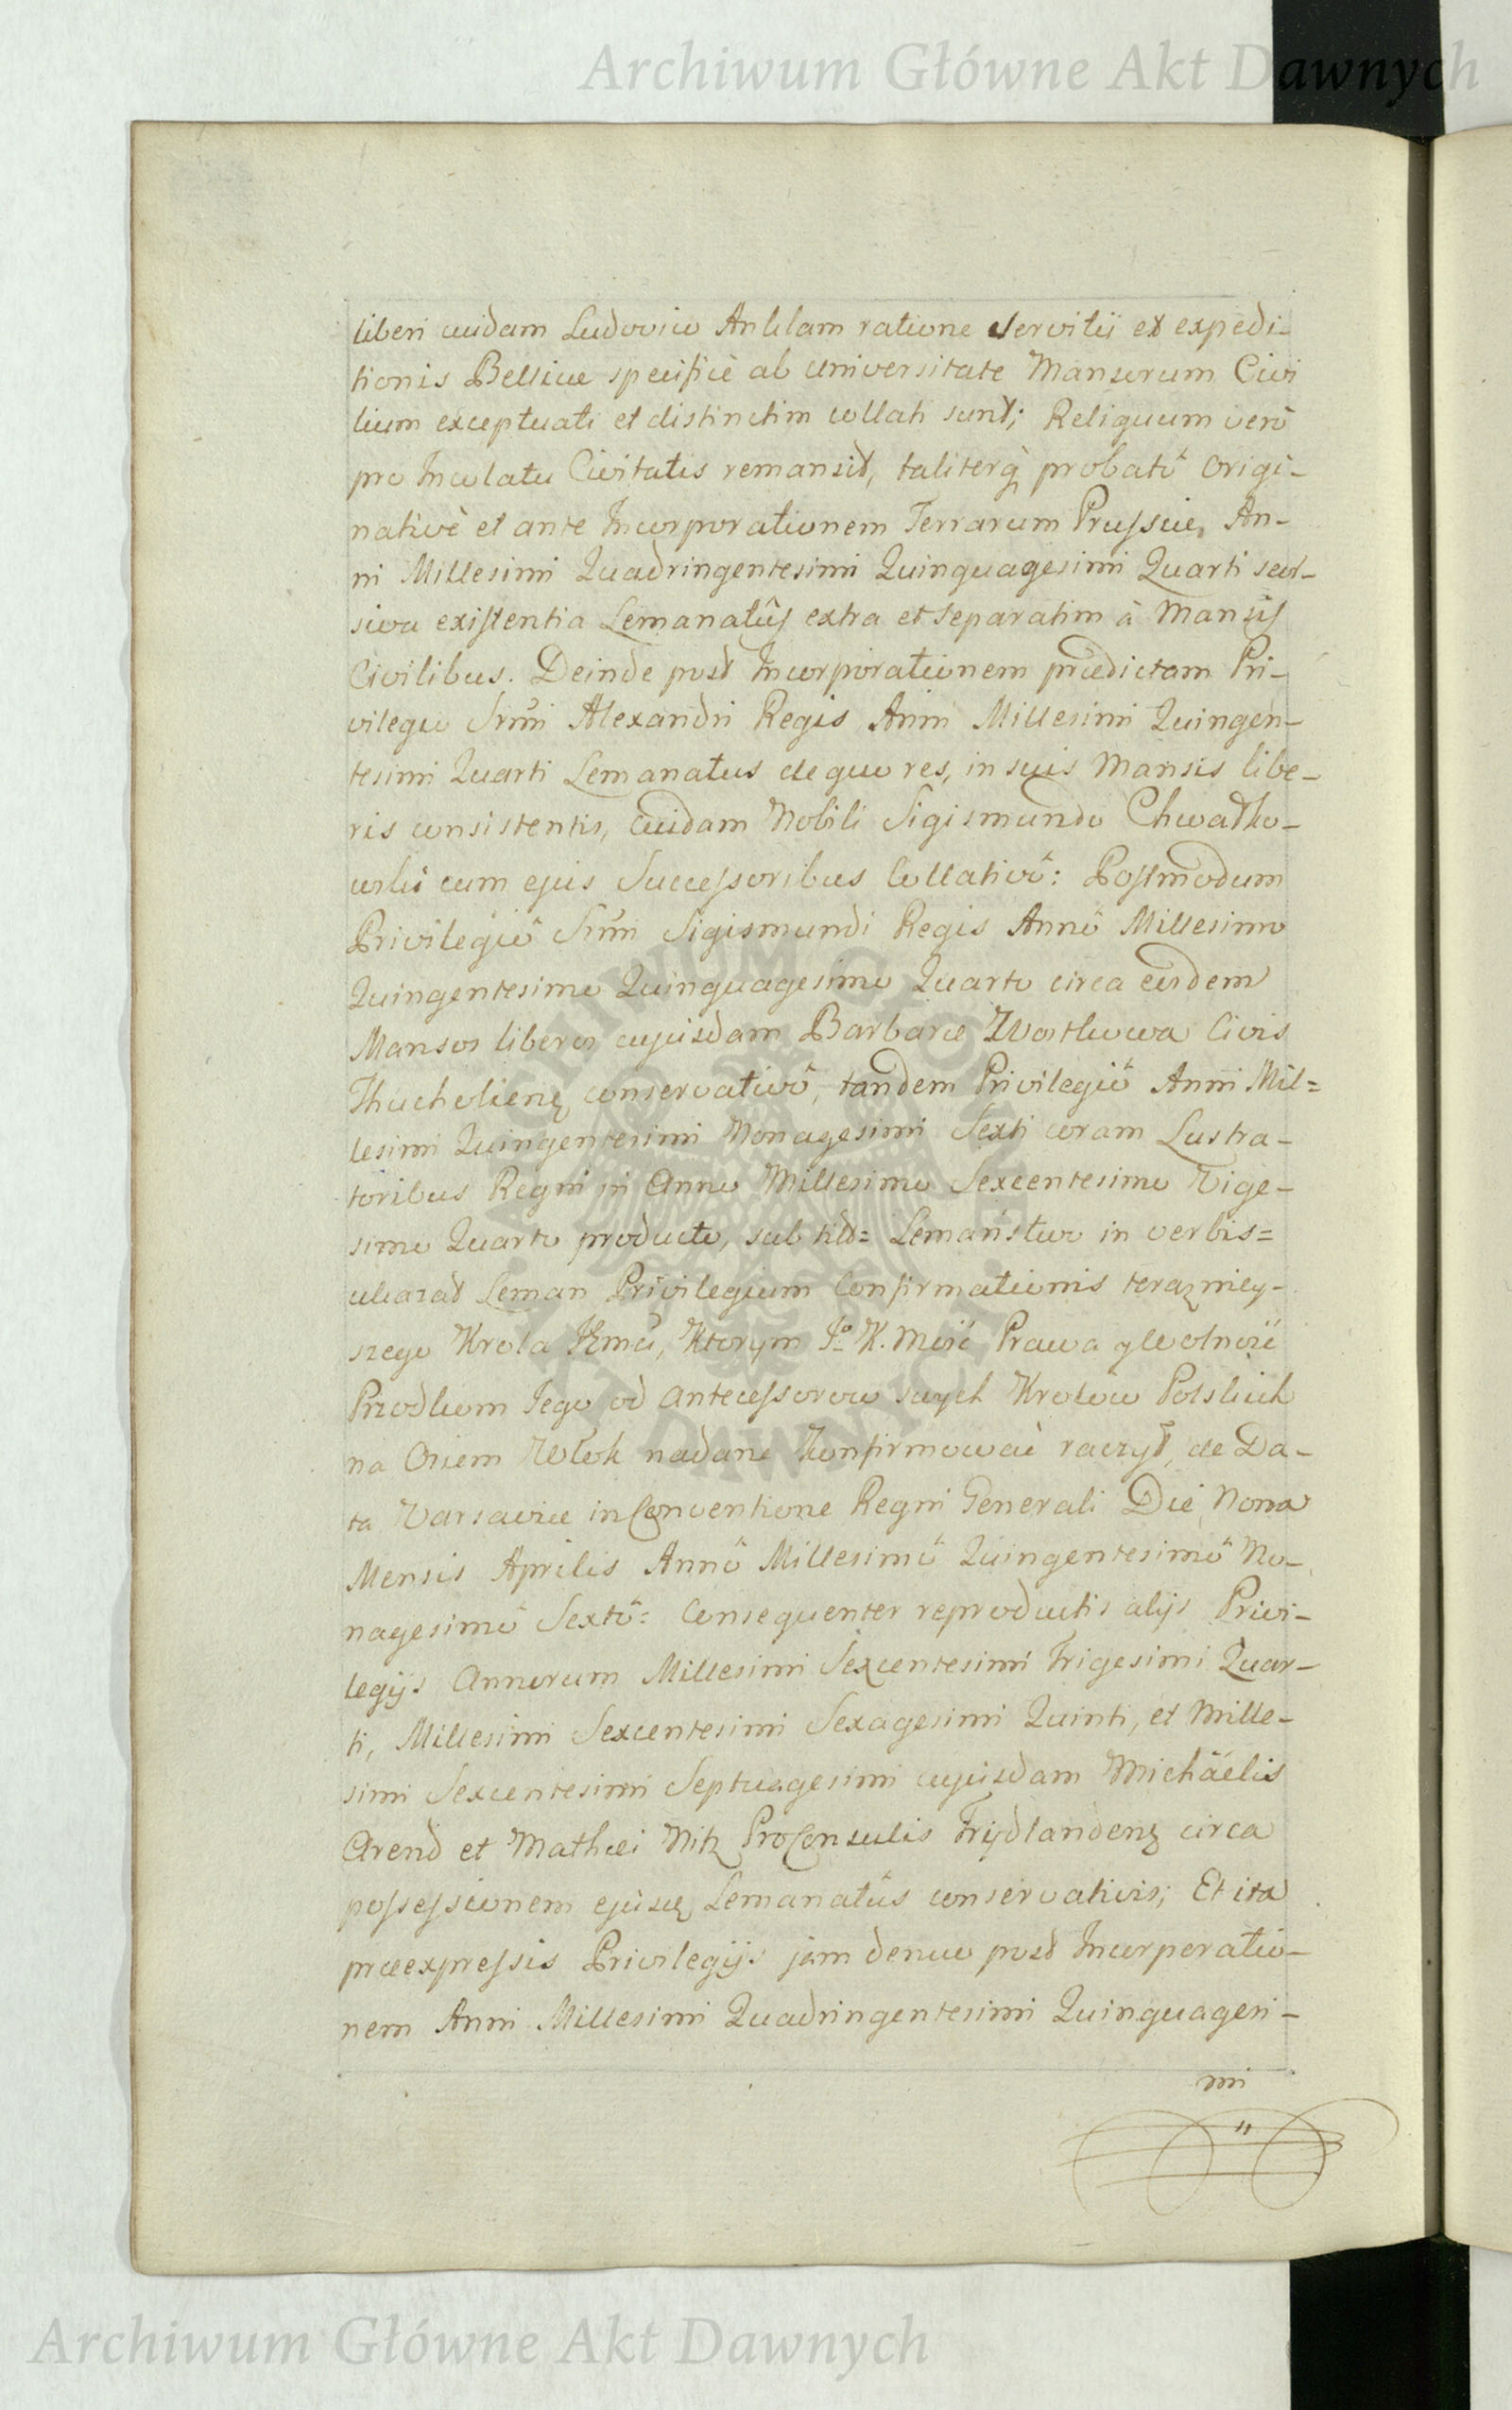 Archiwum Główne Akt Dawnych
liberi cuidam Ludovico Anklam ratione servitii et expedi-
tionis Bellicæ specificè ab universitate Mansorum Civi
lium exceptuati et distinctim collati sunt; Reliquum verò
pro Incolatu Civitatis remansit, taliterq̀ probatô origi-
nativè et ante Incorporationem Terrarum Prussiæ, An-
ni Millesimi Quadringentesimi Quinquagesimi Quarti
existentia Lemanatûs extra et separatim à Mansis
Civilibus. Deinde post Incorporationem prædictam Pri-
vilegio Srm̃i Alexandri Regis Anni Millesimi Quingen-
tesimi Quarti Lemanatus de quo res, in suis Mansis libe-
ris consistentis, cuidam Nobili Sigismundo Chwatko-
wski cum ejus Successoribus Collativô: Postmodum
Privilegiô Srm̃i Sigismundi Regis Annô Millesimo
Quingentesimo Quinquagesimo Quarto circa eosdem
Mansos liberos cujusdam Barbaræ Civis
Thucholienę conservativô, tandem Privilegiô Anni Mil=
lesimi Quingentesimi Nonagesimi Sexti coram Lustra-
toribus Regni in Anno Millesimo Sexcentesimo Vige-
simo Quarto producto, sub titƚo= Lemaństwo in verbis=
ukazał Leman Privilegium Confirmationis terazniey-
szego Krola Jᵒ K. Mość Prawa y Wolność
Przodkom Jego od Antecessorow swych Krolow Polskich
na Osiem Włok nadane konfirmować raczył, de Da-
ta Varsaviæ in Conventione Regni Generali Die Nona
Mensis Aprilis Annô Millesimô Quingentesimô No-
nagesimô Sextô= Consequenter reproductis alijs Privi-
legijs Annorum Millesimi Sexcentesimi Trigesimi Quar-
ti, Millesimi Sexcentesimi Sexagesimi Quinti, et Mille-
simi Sexcentesimi Septuagesimi cujusdam Michäelis
Arend et Mathæi Nitz ProConsulis Frydlandenę circa
possessionem Lemanatûs conservativis; Et ita
præexpressis Privilegijs jam denuo post Incorporatio-
nem Anni Millesimi Quadringentesimi Quinquagesi-
mi
Archiwum Główne Akt Dawnych